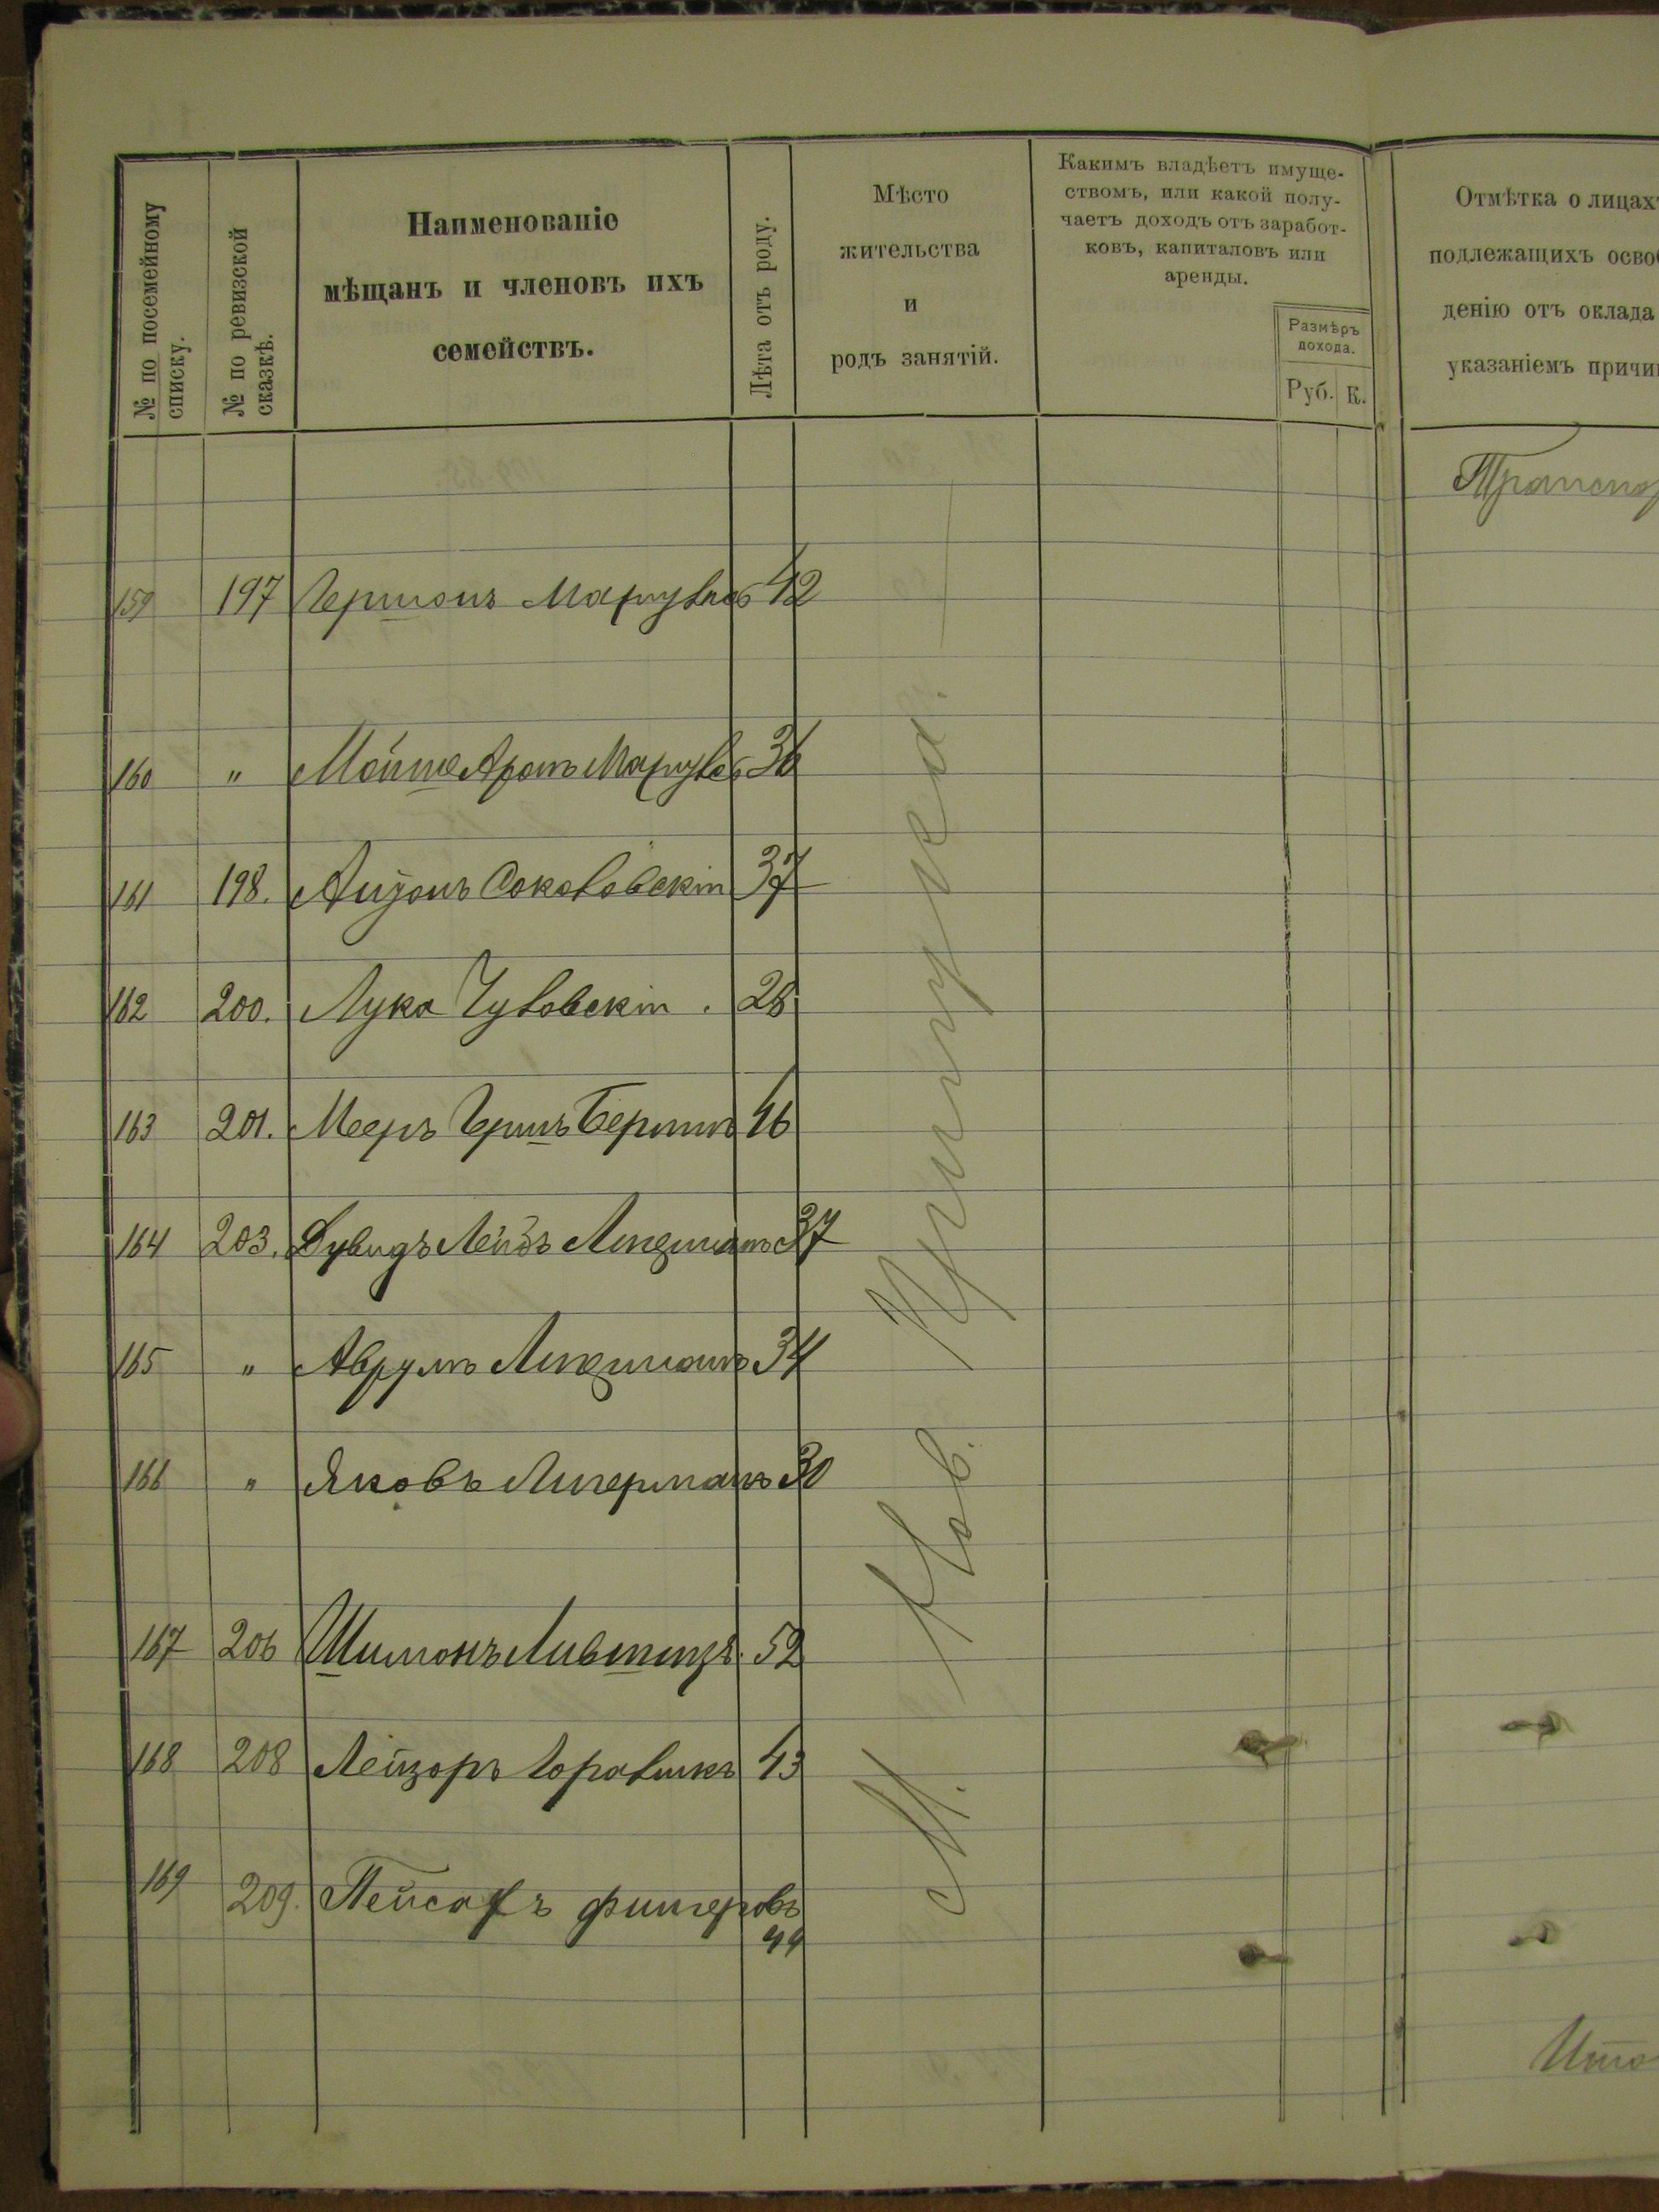 № по посемейному списку.
№ по ревизской сказкѣ.
Наименованіе
мѣщанъ и членовъ ихъ
семействъ.
Лѣта отъ роду.
Мѣсто
жительства
и
родъ занятій.
Какимъ владѣетъ имуще-
ствомъ, или какой полу-
чаетъ доходъ отъ заработ-
ковъ, капиталовъ или
аренды.
Размѣръ
дохода.
Руб. К.
Отмѣтка о лицахъ
подлежащихъ осво
денію отъ оклада
указаніемъ причи
Транспор
159 197 Гершонъ 42
160 " Мойше Аронъ 36
161 198. Соколовскій 37
162 200. Лука Чуловскій. 28
163 201. Мееръ Гершъ Берманъ 46
164 203. Дувидъ Лейбъ 37
165 " Аврумъ 34
166 " Яковъ Лигерманъ 30
167 206 Шимонъ Лившицъ. 52
168 208 Лейзоръ Горовикъ 43
169 209. Пейсахъ Фингеровъ
44
М.
Итo